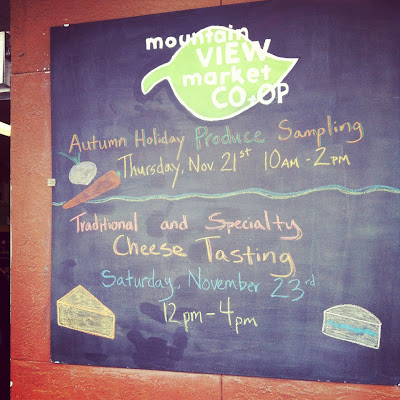 mountain
VIEW
market
CO-OP
Autumn Holiday Produce Sampling
Thursday, Nov. 21st 10AM - 2PM
Traditional and Specialty
Cheese Tasting
Saturday, November 23rd
12pm - 4pm